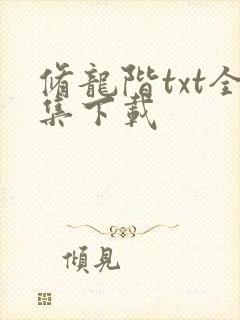 脩龍階txt全
集下載
傾見